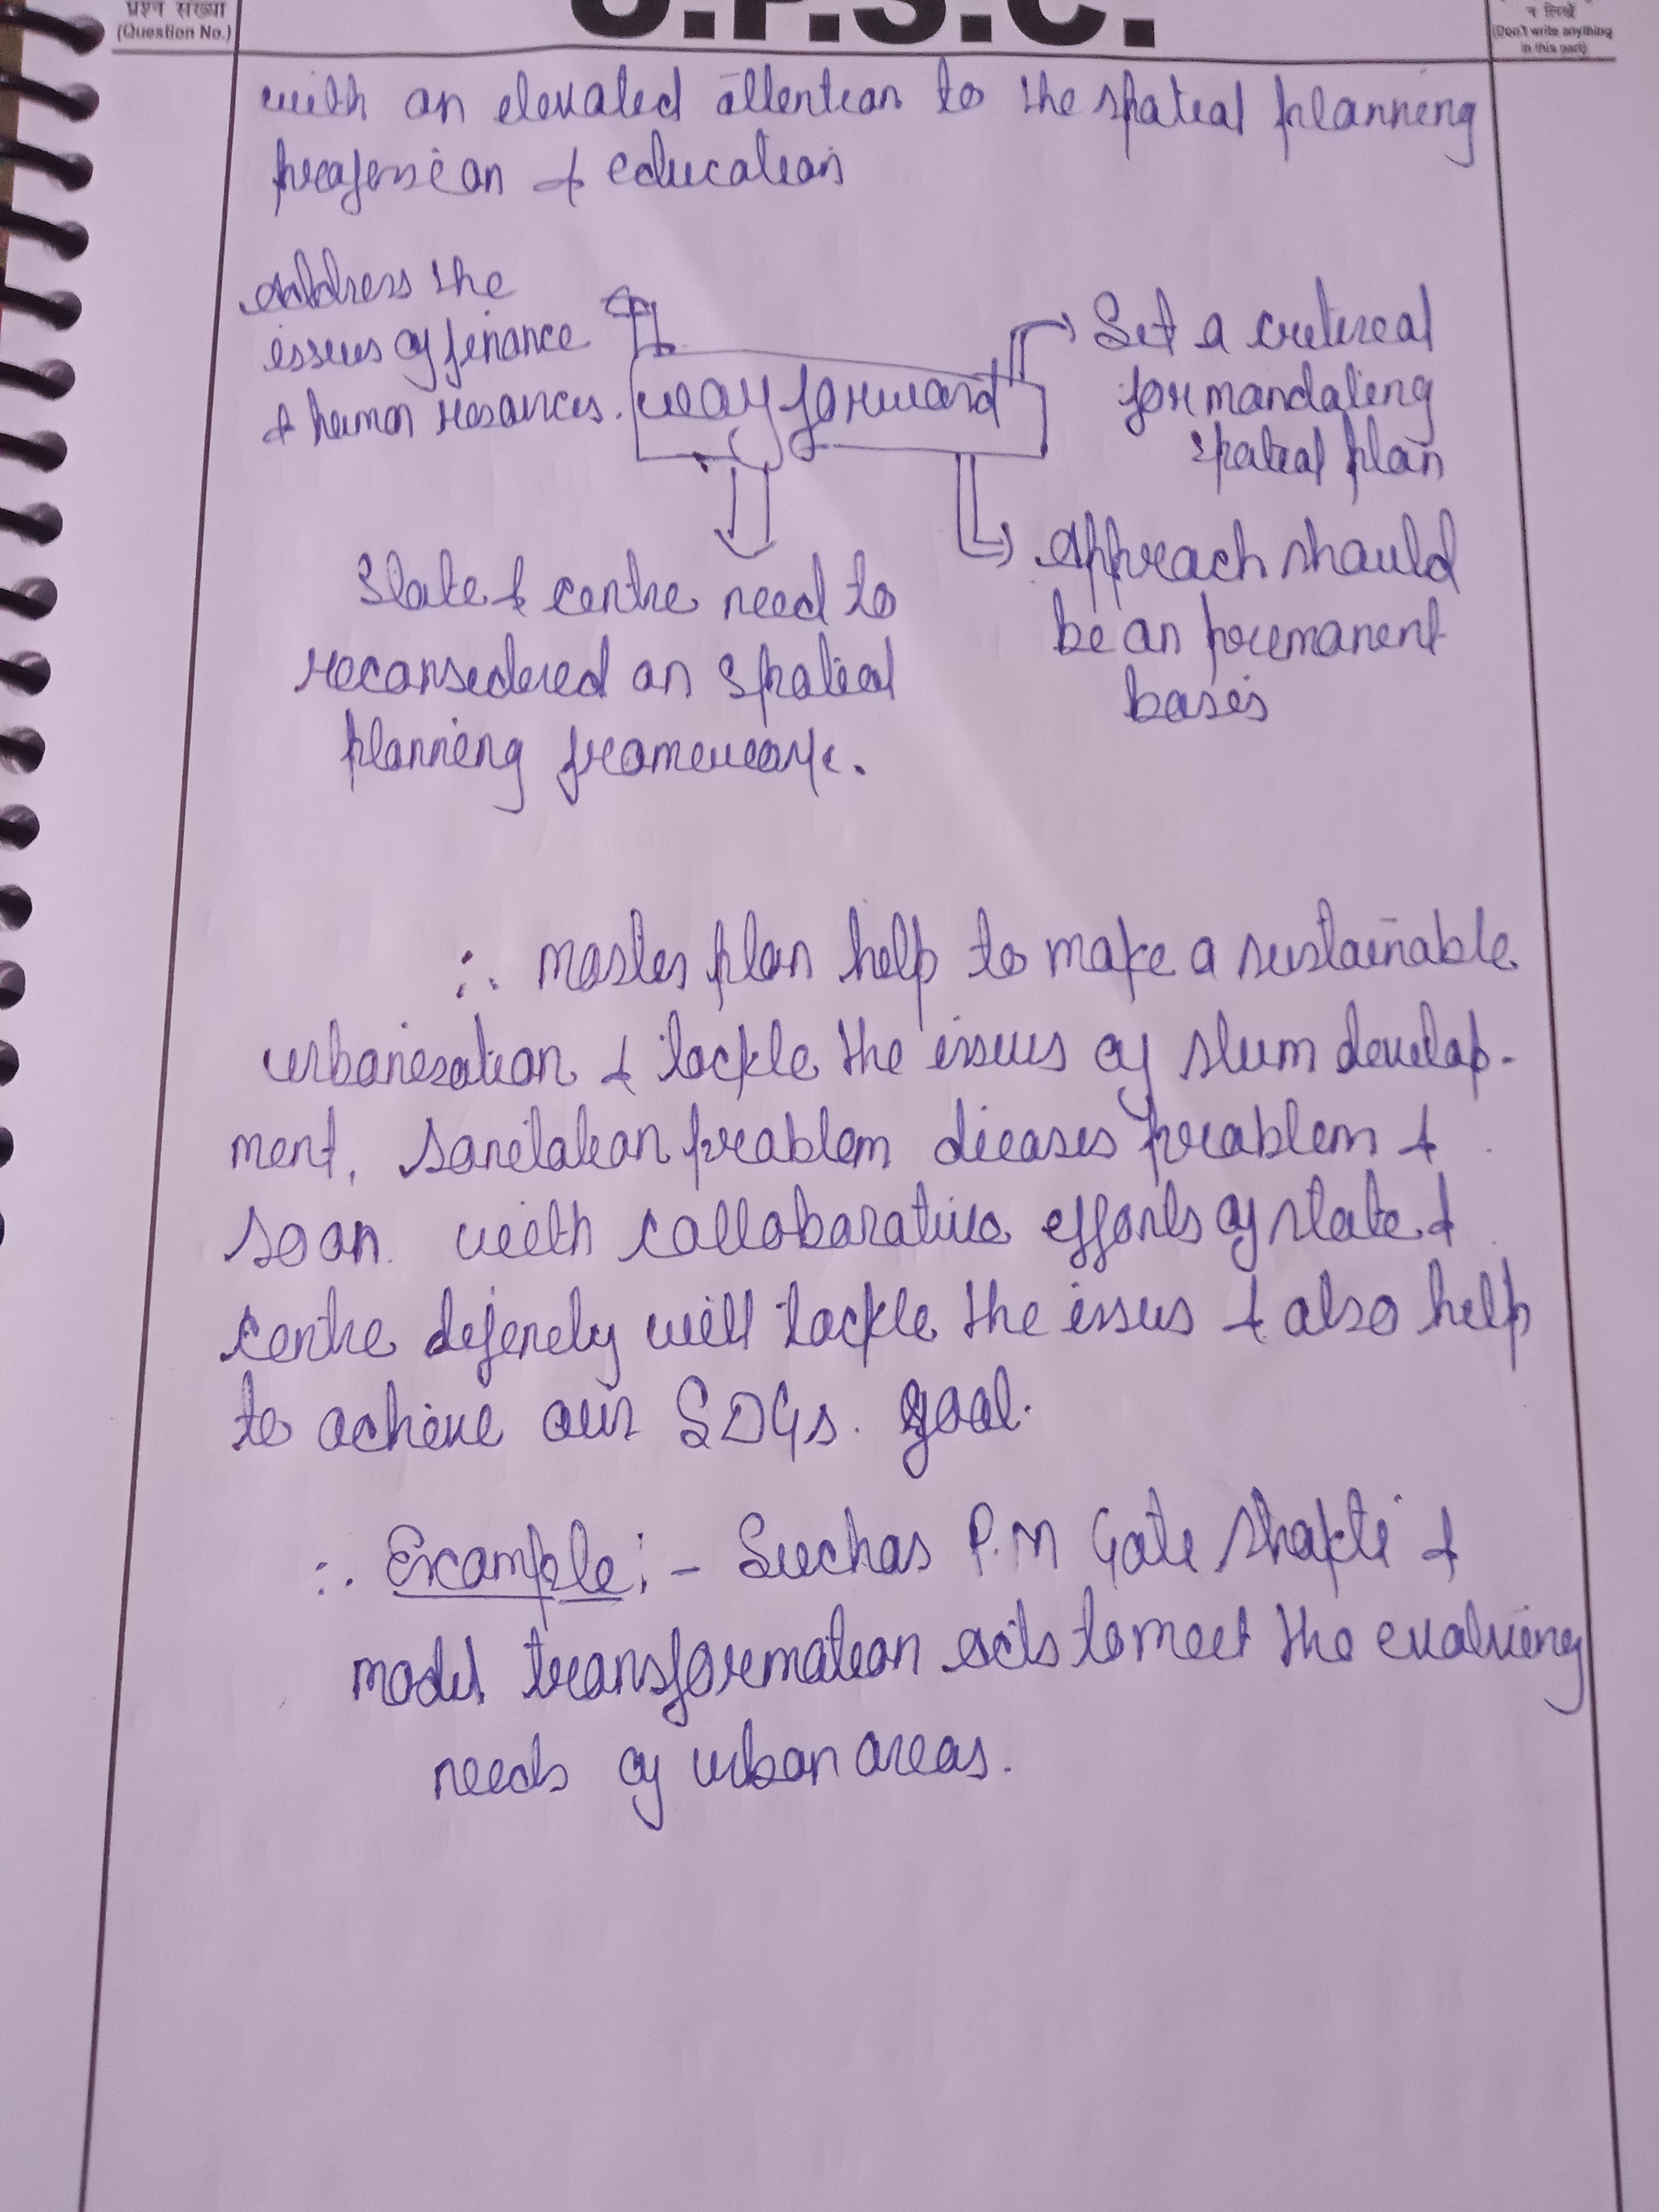 प्रश्न संख्या
(Question No.)
U.P.S.C.
न लिखें
(Don't write anything
in this part)
with an elevated attention to the spatial planning
profession & education
Address the
issues of finance
& human resources.
way forward
Set a critireal
for mandating
spatial plan
Approach should
be an permanent
bases
State & centre need to
reconsidered an spatial
planning framework.
∴ master plan help to make a sustainable
urbanization & tackle the issues of slum develop-
ment, sanitation problem dieases problem &
so on. with collaborative efforts of state &
centre definely will tackle the issues & also help
to achieve our SDGs. goal.
∴ Example :- Such as P.M Gate Shakti &
model transformation acts to meet the evalving
needs of urban areas.